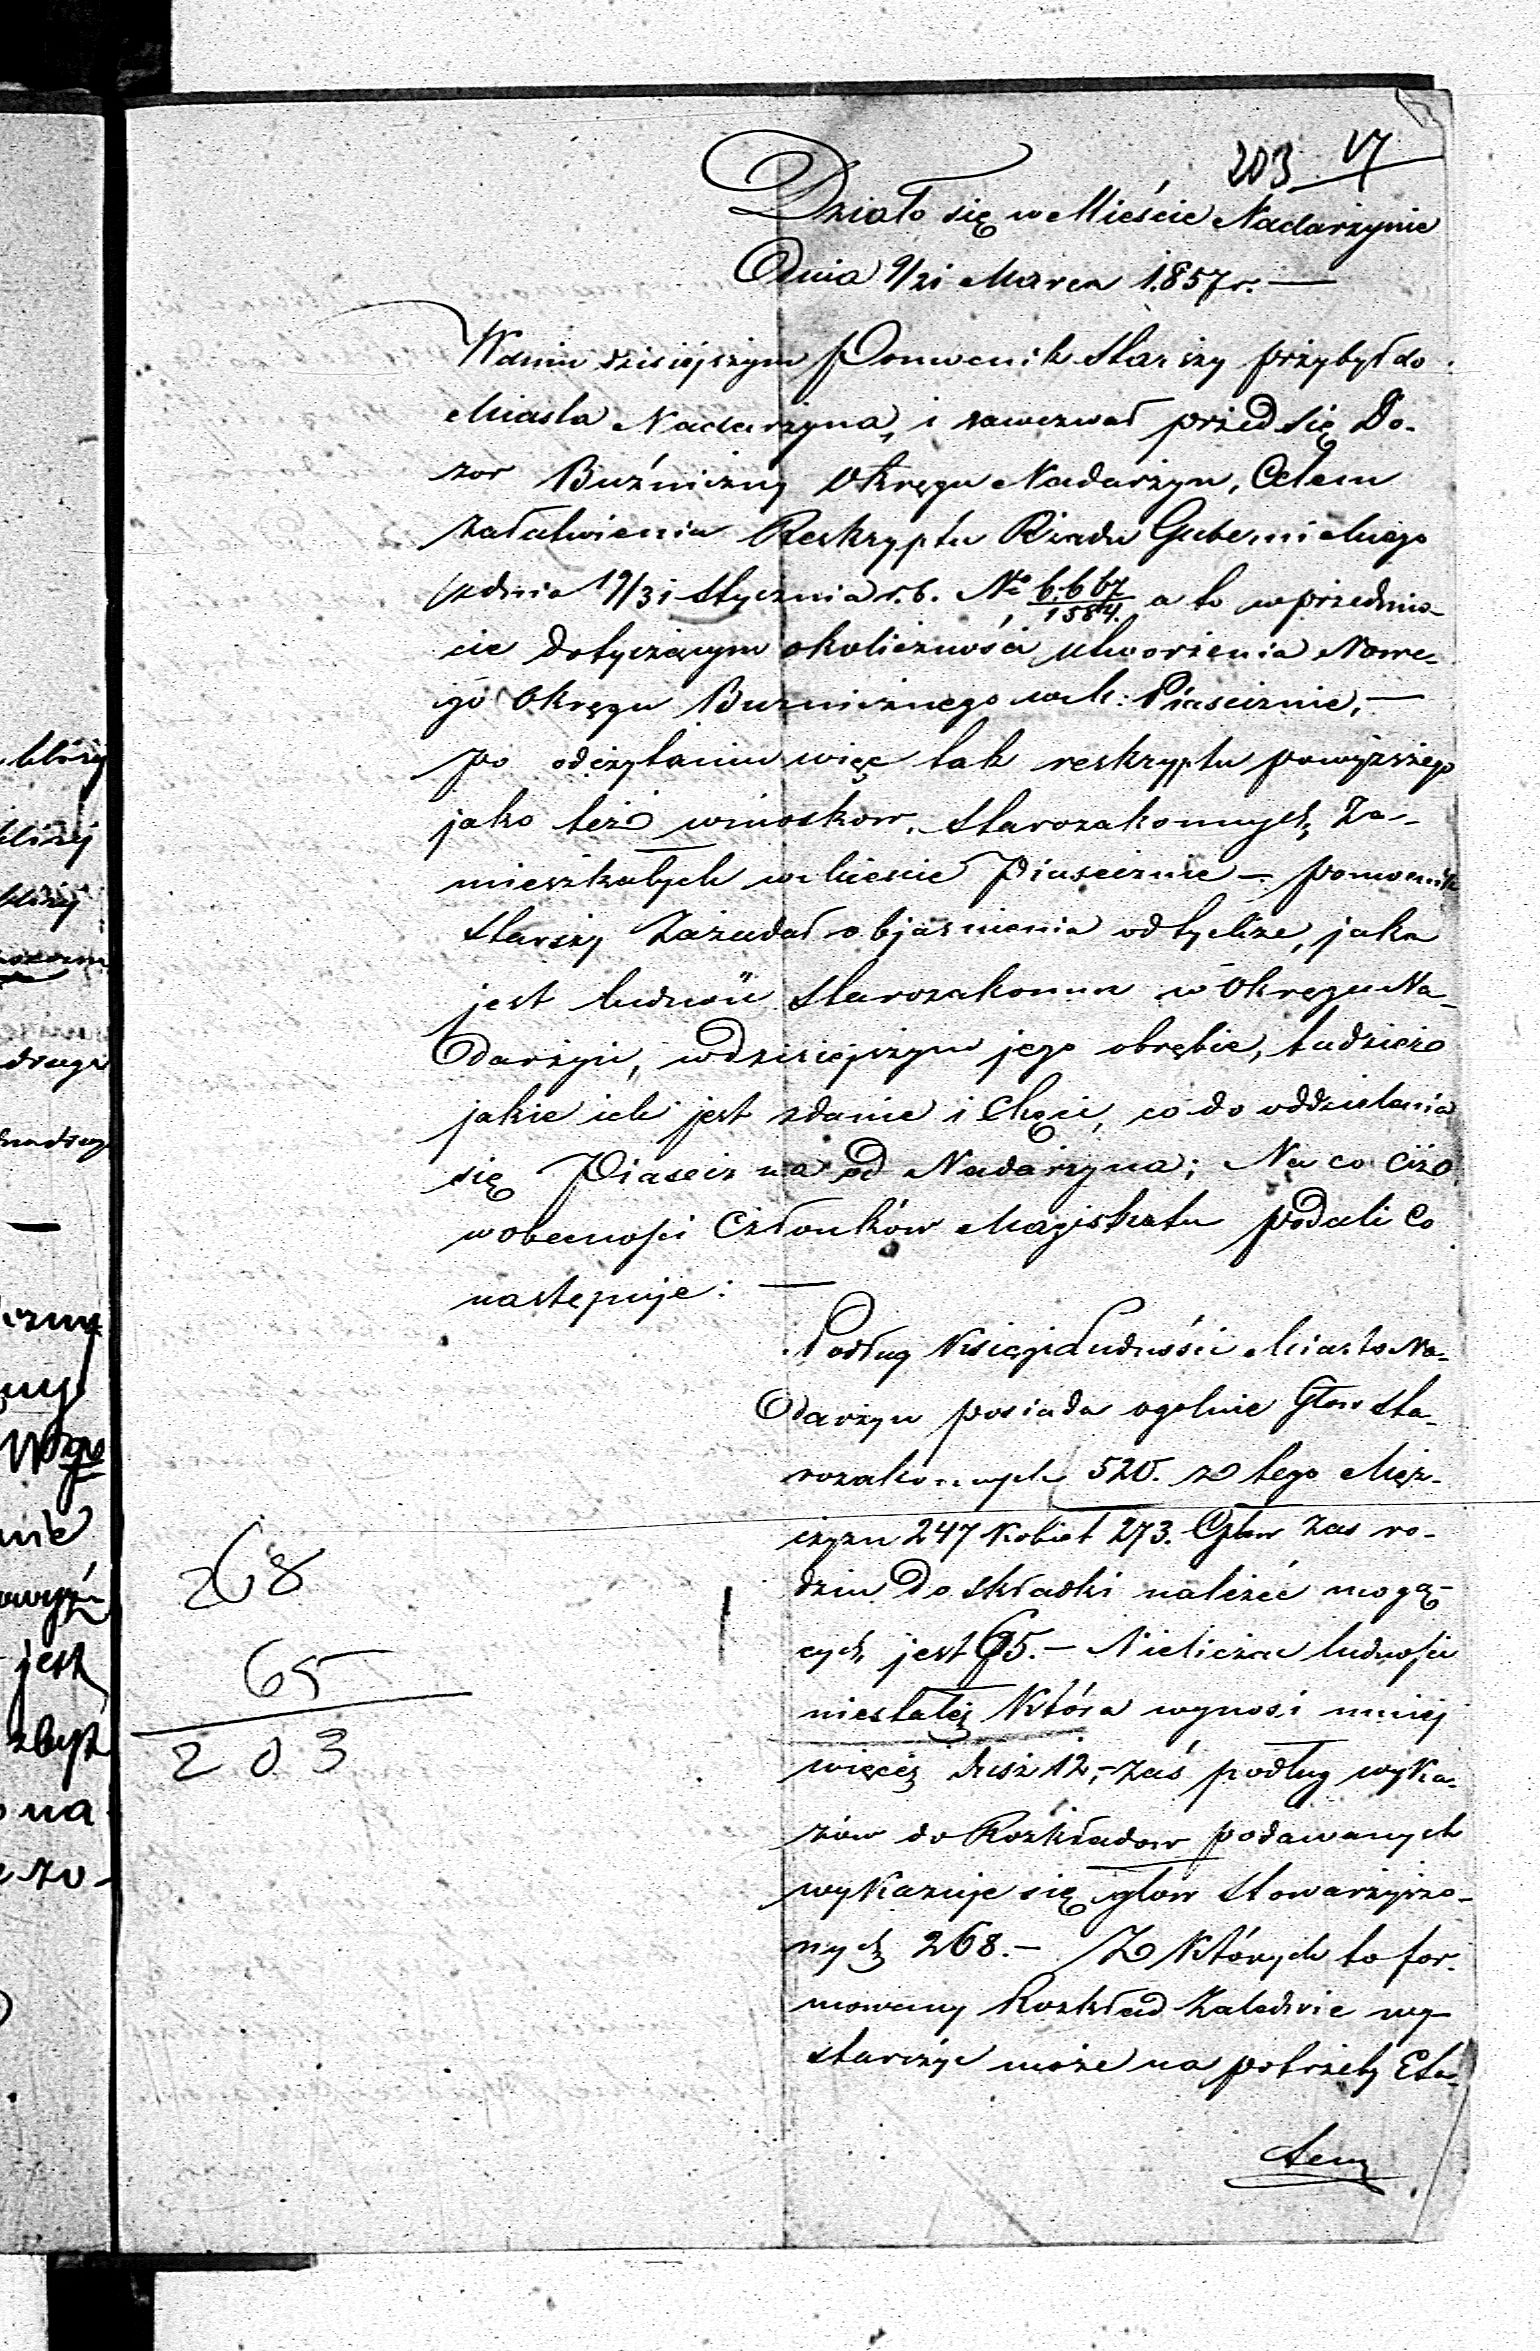 203 17
Działo się w Mieście Nadarzynie
Dnia 9/21 Marca 1857 r. —
W dniu dzisiejszym Pomocnik Starszy przybył do
Miasta Nadarzyna, i zawezwał przed się Do-
zor Bużniczny Okręgu Nadarzyn, Celem
załatwienia Reskryptu Rządu Gubernialnego
z dnia 19/31 Stycznia r. b. No 6.667/1584. a to w przedmio-
cie dotyczącym okoliczności utworzenia Nowe-
go Okręgu Bużnicznego w M: Piasecznie, —
po odczytaniu więc tak reskryptu powyższego
jako też wniosków, Starozakonnych Za-
mieszkałych w Mieście Piasecznie — pomocnik
Starszy Zażądał objasnienia od tychże, jaka
jest ludność Starozakonna w Okręgu Na-
darzyn, w dzisiejszym jego obrębie, tudzież
jakie ich jest zdanie i Chęci, co do oddzielenia
się Piaseczna od Nadarzyna; Na co Ciż
w obecności Członków Magistratu podali Co
następuje: —
Podług Księgi Ludności Miasto Na-
darzyn posiada ogolnie Głów Sta-
rozakonnych 520. z tego Męż-
czyzn 247 Kobiet 273. Głów zaś ro-
dzin do składki należeć mogą-
cych jest 65. — Nielicząc ludności
niestałej Która wynosi mniej
więcej dusz 12, — zaś podług wyka-
zów do Rozkładow podawanych
wykazuje się głów Stowarzyszo-
nych 268. — Z Których to for-
mowany Rozkład Zaledwie wy-
starczyć może na potrzeby Eta-
268
65
203